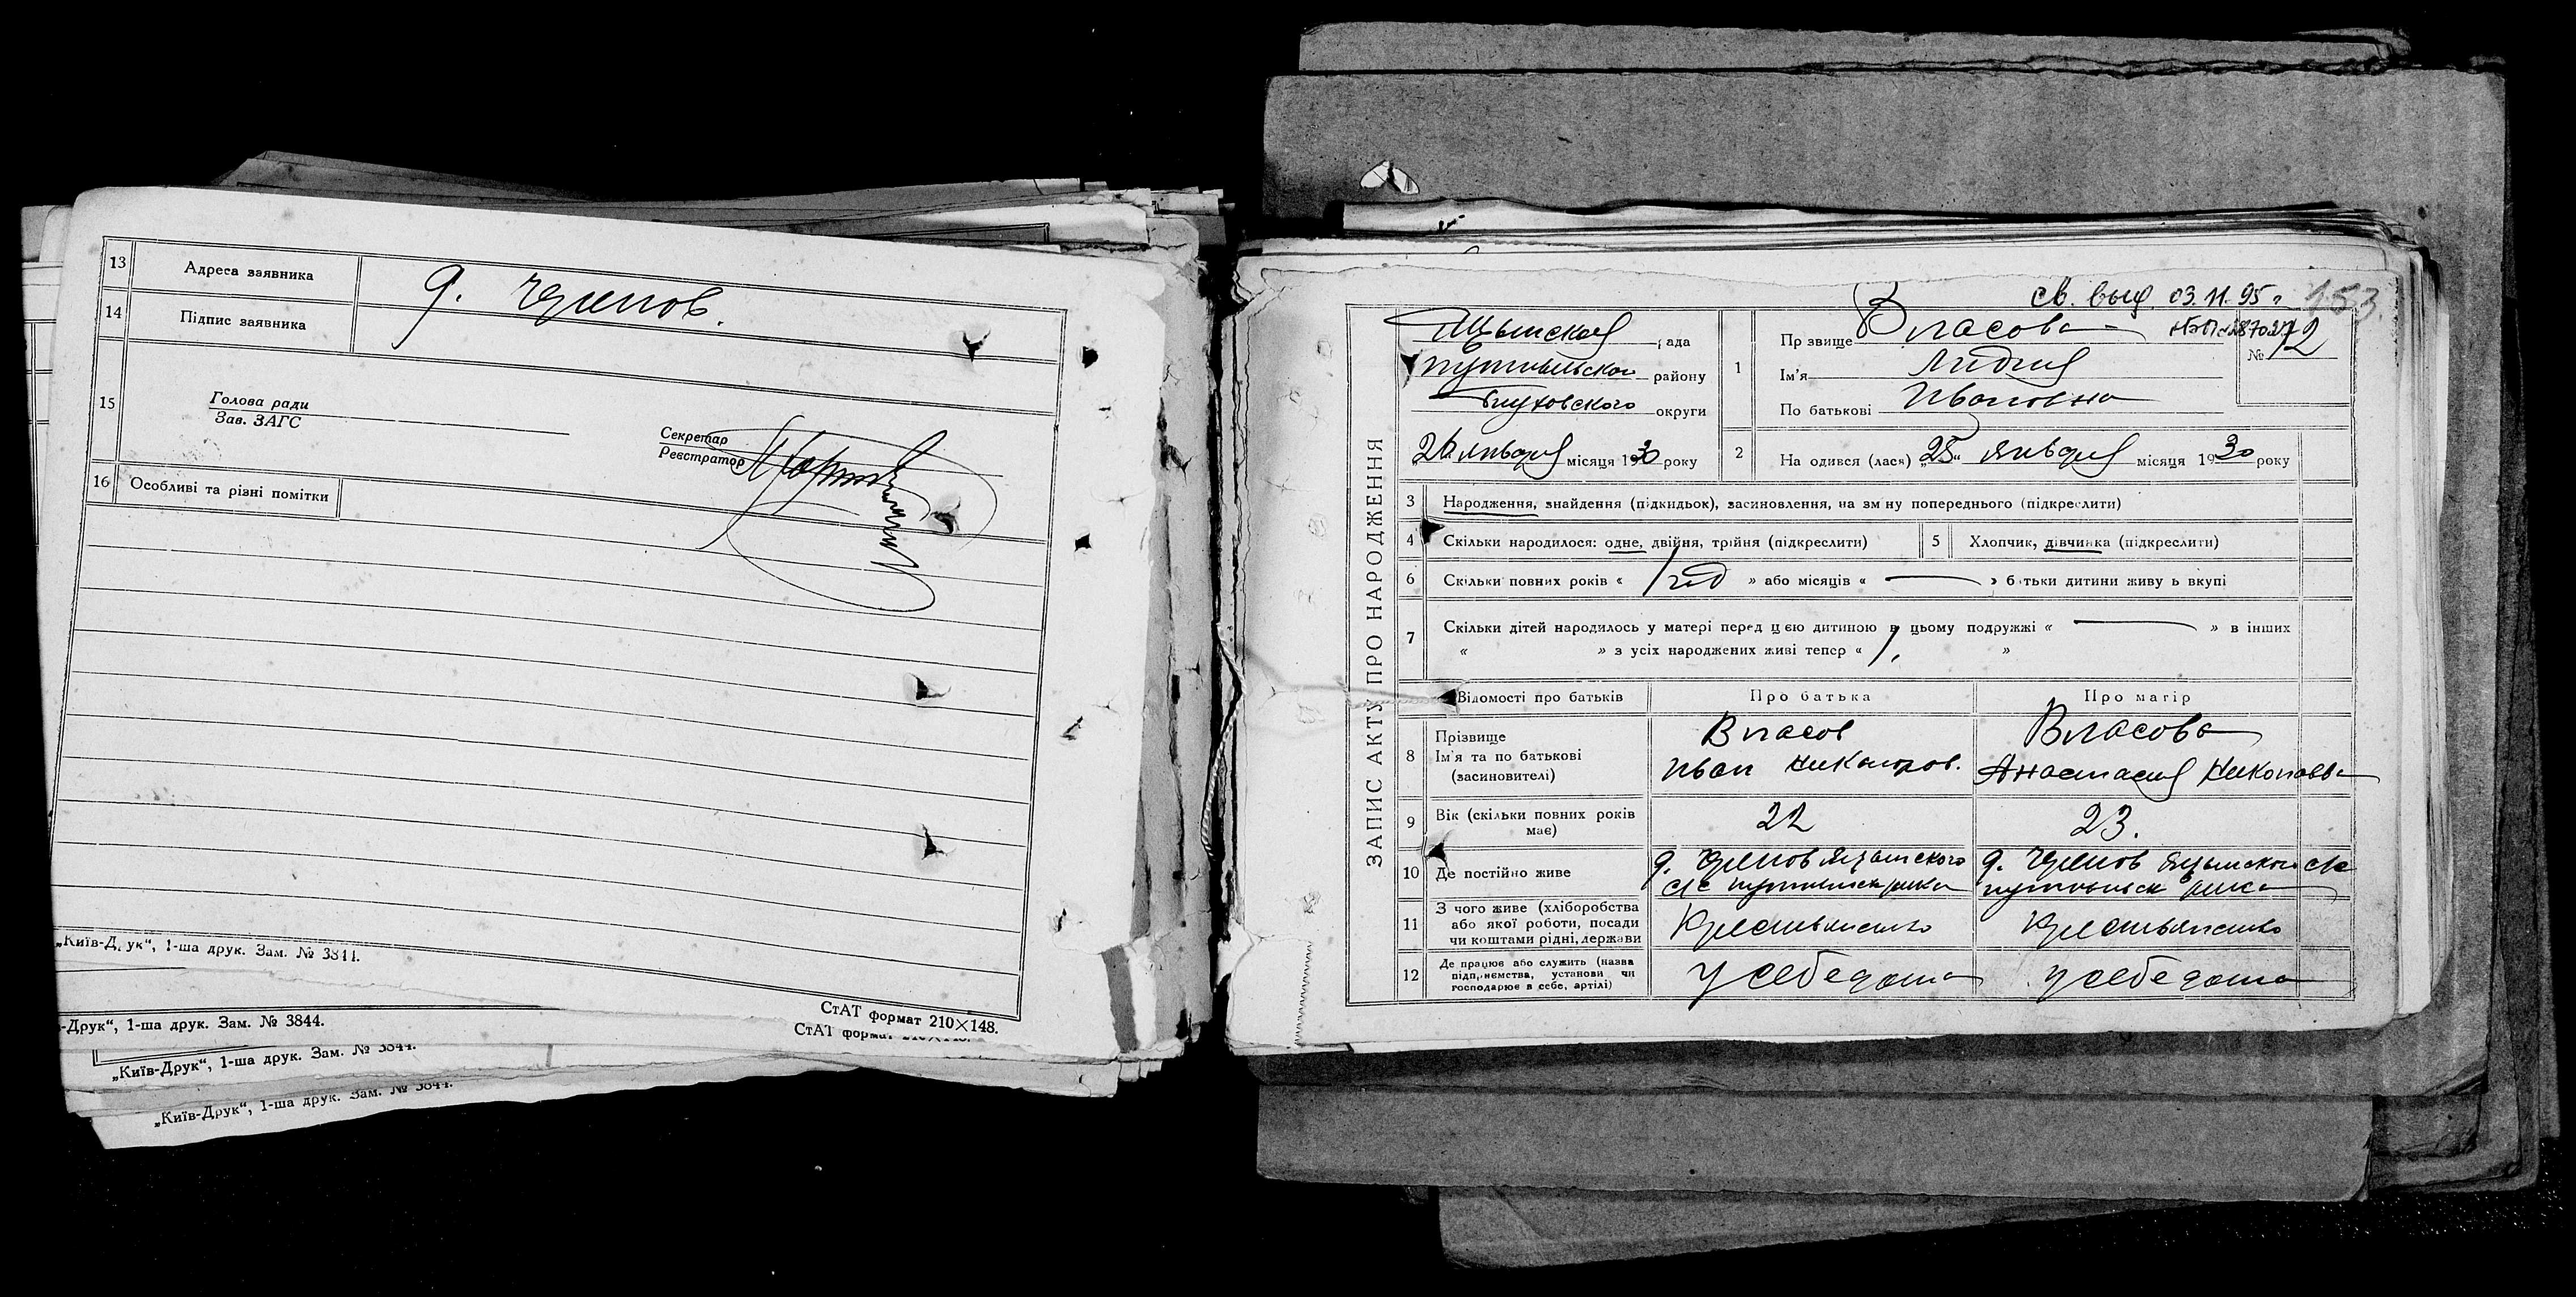 13 Адреса заявника д. Чумов.
14 Підпис заявника
15 Голова ради
Зав. ЗАГС
Секретар
Реєстратор
16 Особливі та різні помітки
„Київ-Друк“, 1-ша друк. Зам. № 3844.
СтАТ формат 210×148.
-Друк“, 1-ша друк. Зам. № 3844.
СтАТ формат 210×148.
„Київ-Друк“, 1-ша друк. Зам. № 3844.
„Київ-Друк“, 1-ша друк. Зам. № 3844.
св. выд. 03.11.95 г 153.
ЗАПИС АКТУ ПРО НАРОДЖЕННЯ
рада
Путивльского району
Глуховского округи
„26 января місяця 1930 року
1 Прізвище Власова
№ 12
Ім'я Лидия
По батькові Ивановна
2 Народився (лася) „25“ января місяця 1930 року
3 Народження, знайдення (підкидьок), засиновлення, на зміну попереднього (підкреслити)
4 Скільки народилося: одне, двійня, трійня (підкреслити)
5 Хлопчик, дівчинка (підкреслити)
6 Скільки повних років « 1 год » або місяців « — » батьки дитини живуть вкупі
7 Скільки дітей народилось у матері перед цією дитиною в цьому подружжі « — » в інших
« » з усіх народжених живі тепер « 1. »
Відомості про батьків Про батька Про матір
8 Прізвище
Ім'я та по батькові
(засиновителі)
Власов
Иван Никаноров.
Власова
Анастасия Николаевна
9 Вік (скільки повних років має) 22 23.
10 Де постійно живе
11 З чого живе (хліборобства
або якої роботи, посади
чи коштами рідні, держави
Крестьянство Крестьянство
12 Де працює або служить (назва
підприємства, установи чи
господарює в себе, артілі)
у себя дома у себя дома